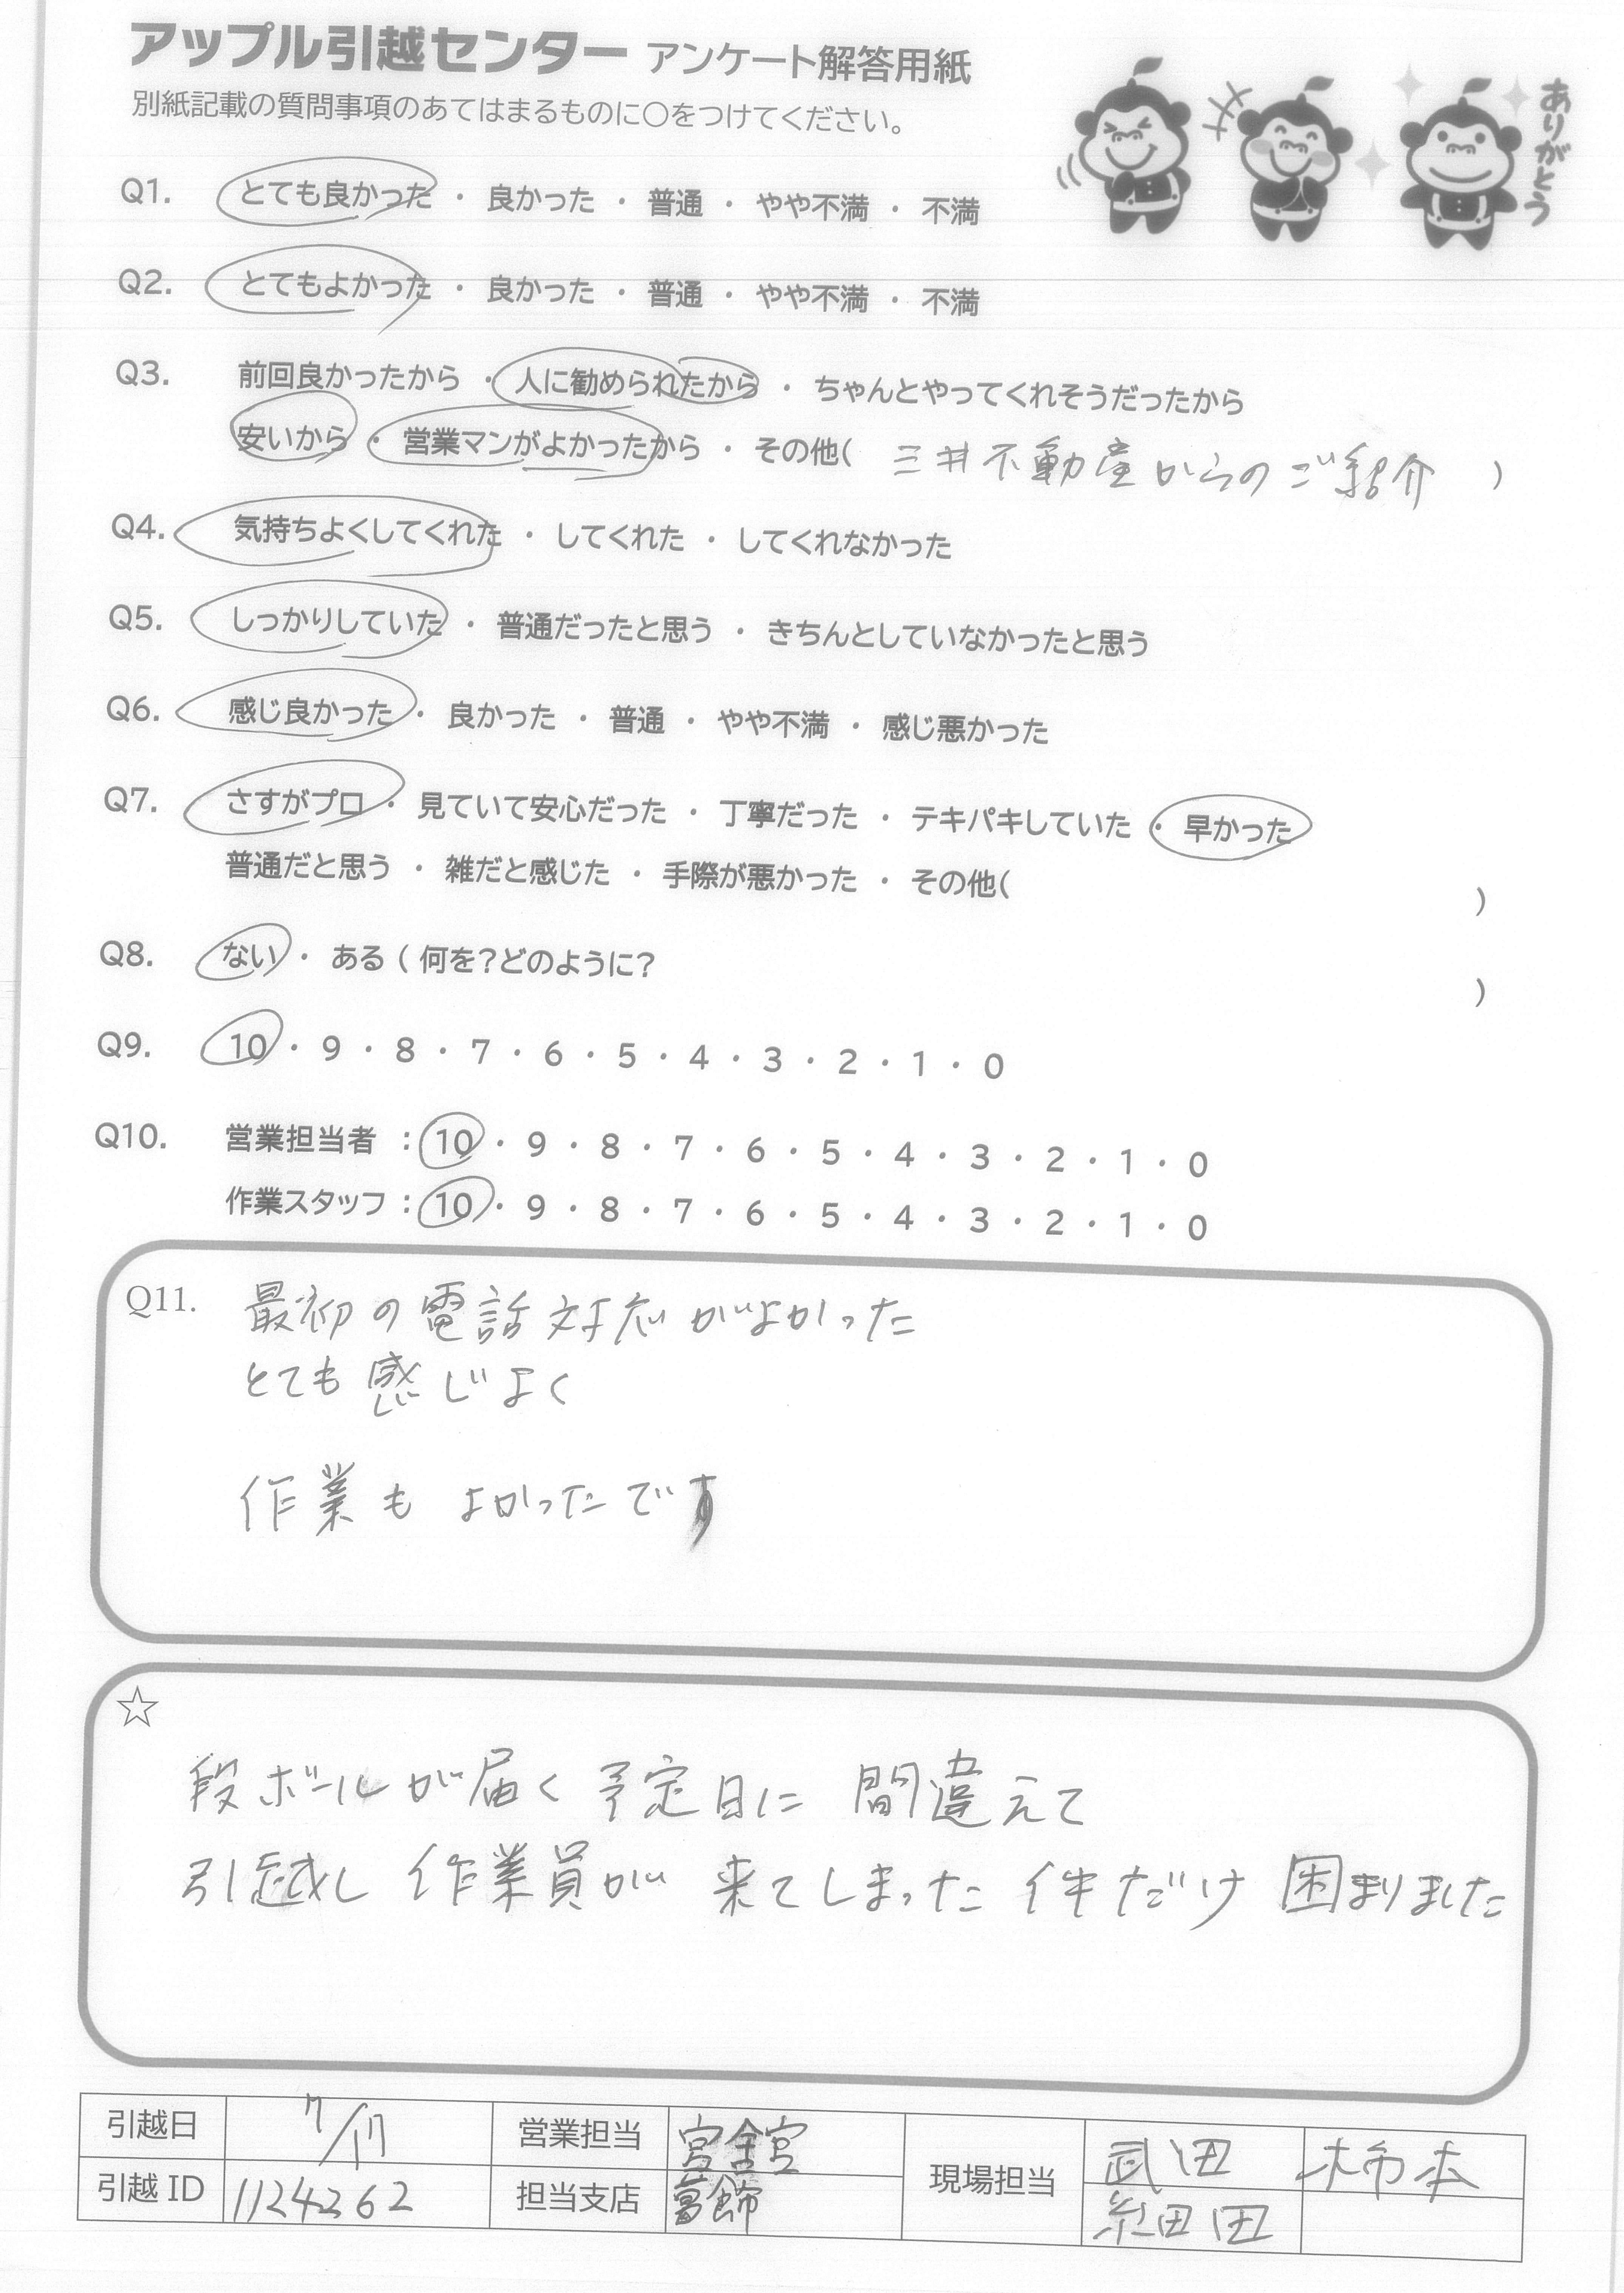 アップル引越センター アンケート解答用紙
別紙記載の質問事項のあてはまるものに○をつけてください。
ありがとう
Q1. とても良かった ・ 良かった ・ 普通 ・ やや不満 ・ 不満
Q2. とてもよかった ・ 良かった ・ 普通 ・ やや不満 ・ 不満
Q3. 前回良かったから ・ 人に勧められたから ・ ちゃんとやってくれそうだったから
安いから ・ 営業マンがよかったから ・ その他( 三井不動産からのご紹介 )
Q4. 気持ちよくしてくれた ・ してくれた ・ してくれなかった
Q5. しっかりしていた ・ 普通だったと思う ・ きちんとしていなかったと思う
Q6. 感じ良かった ・ 良かった ・ 普通 ・ やや不満 ・ 感じ悪かった
Q7. さすがプロ ・ 見ていて安心だった ・ 丁寧だった ・ テキパキしていた ・ 早かった
普通だと思う ・ 雑だと感じた ・ 手際が悪かった ・ その他( )
Q8. ない ・ ある ( 何を?どのように? )
Q9. 10 ・ 9 ・ 8 ・ 7 ・ 6 ・ 5 ・ 4 ・ 3 ・ 2 ・ 1 ・ 0
Q10. 営業担当者 : 10 ・ 9 ・ 8 ・ 7 ・ 6 ・ 5 ・ 4 ・ 3 ・ 2 ・ 1 ・ 0
作業スタッフ : 10 ・ 9 ・ 8 ・ 7 ・ 6 ・ 5 ・ 4 ・ 3 ・ 2 ・ 1 ・ 0
Q11. 最初の電話対応がよかった
とても感じよく
作業も よかったです
☆
段ボールが届く予定日に 間違えて
引越し 作業員が 来てしまった 件だけ 困りました
引越日 7/17 営業担当 現場担当 武田 柿本
引越 ID 1124262 担当支店 葛飾 細田